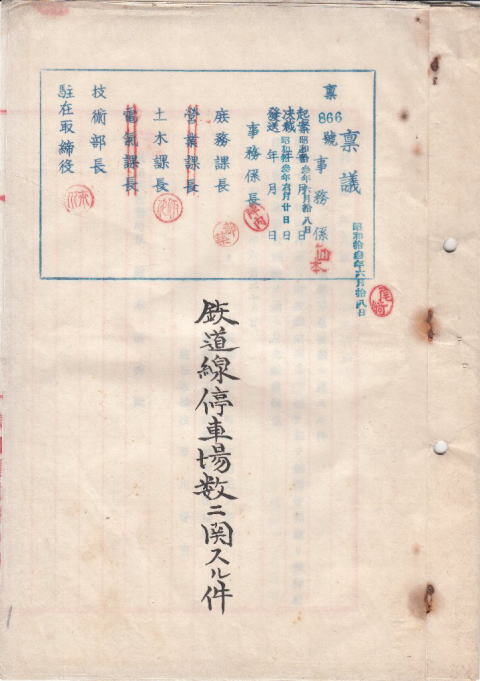 稟議
稟866號
事務係
昭和拾叁年六月拾八日
起案 昭和拾叁年六月拾八日
決裁 昭和拾叁年六月廿日
發送 年月日
事務係長
庶務課長
營業課長
土木課長
電氣課長
技術部長
駐在取締役
鉄道線停車場数ニ関スル件